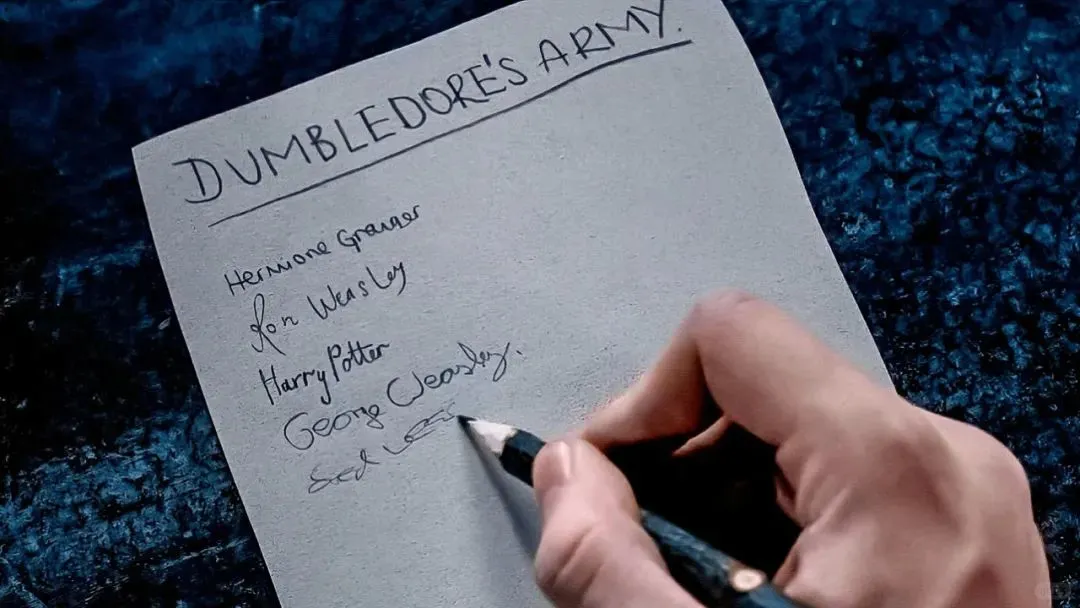 DUMBLEDORE'S ARMY.
Hermione Granger
Ron Weasley
Harry Potter
George Weasley.